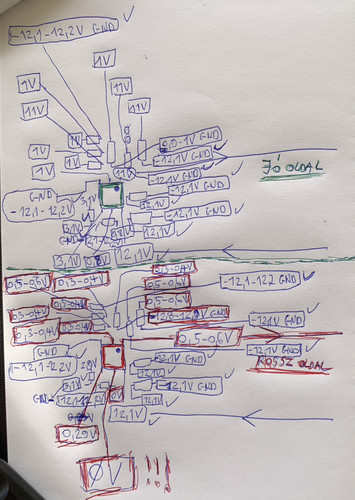 -12,1-12,2V GND
1V
1V
11V
11V
1V
1V
1V
1V
1V
11V
0,9-1V GND
-12,1V GND
JÓ OLDAL
-12,1V GND
-12,1V GND
GND
-12,1-12,2V
3,1V
12,1V
-12,1V GND
3,1V
GND
12,1V
3,1V
12,1V
0,3-0,4V
0,5-0,6V
0,3-0,4V
0,5-0,6V
-12,1-12,2 GND
0,5-0,6V
0,3-0,4V
-12,1V GND
0,3-0,4V
0,5-0,6V
GND
-12,1V GND
-12,1-12,2V
12,1V GND
ROSSZ OLDAL
12,1V
GND
12,1V GND
12,1V
0,29V
12,1V
0,29V
0V !!!